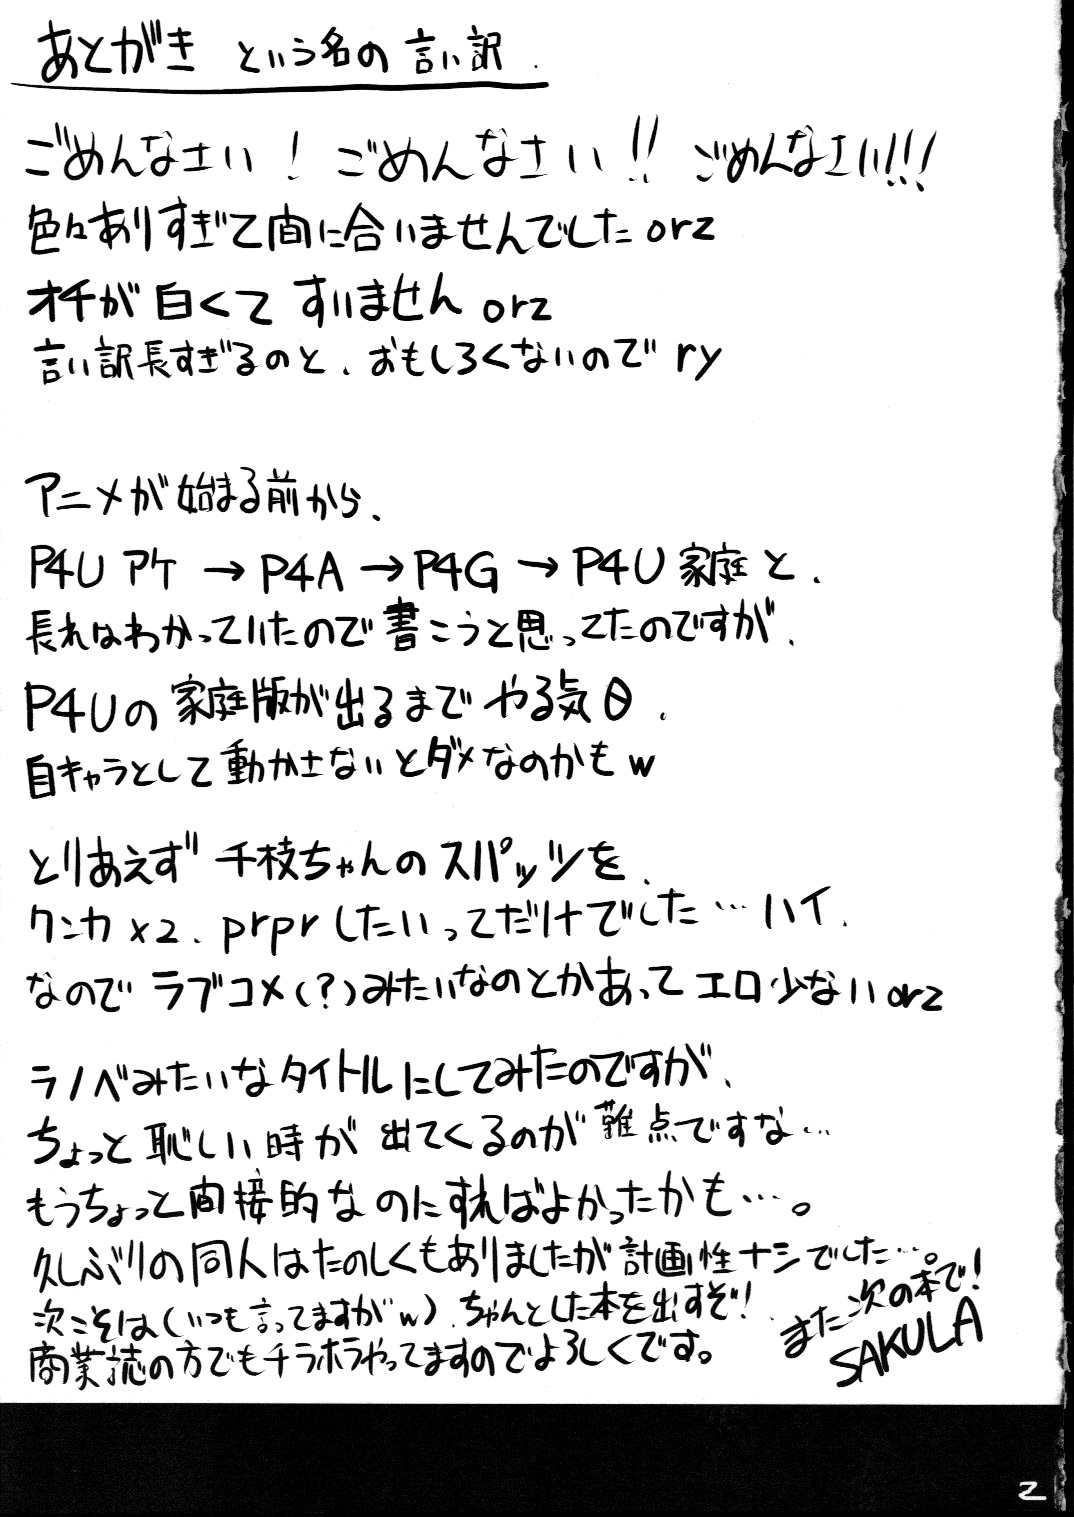 あとがき という名の 言い訳.
ごめんなさい! ごめんなさい!! ごめんなさい!!!
色々ありすぎて間に合いませんでした orz
オチが白くて すいません orz
言い訳長すぎるのと、おもしろくないので ry
アニメが始まる前から、
P4U アケ → P4A → P4G → P4U 家庭 と、
長れはわかっていたので書こうと思ってたのですが、
P4Uの家庭版が出るまで やる気θ、
自キャラとして動かさないとダメなのかもw
とりあえず 千枝ちゃんのスパッツを、
クンカx2、prprしたいってだけでした…ハイ、
なので ラブコメ(?)みたいなのとかあって エロ少ないorz
ラノベみたいなタイトルにしてみたのですが、
ちょっと恥しい時が 出てくるのが難点ですな…
もうちょっと間接的なのにすればよかったかも…。
久しぶりの同人はたのしくもありましたが計画性ナシでした…。
次こそは(いつも言ってますがw)、ちゃんとした本を出すぞ!
商業誌の方でもチラホラやってますのでよろしくです。
また次の本で!
SAKULA
2